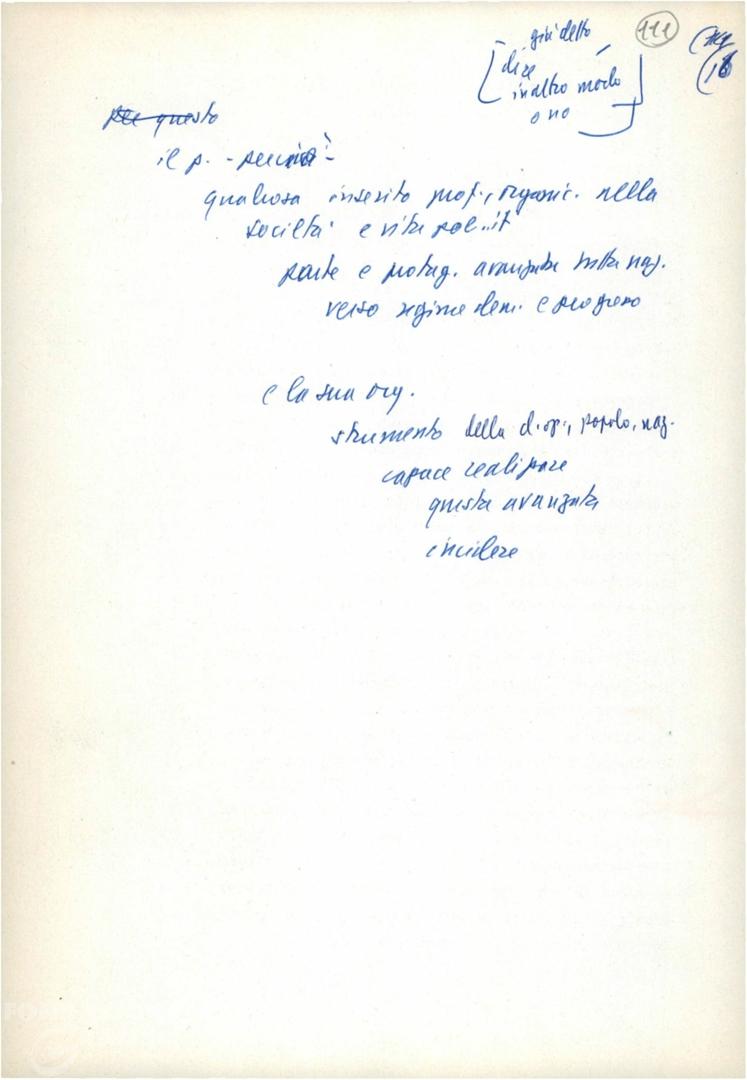 già detto
111
dire
in altro modo
o no
per questo
il p. - perciò -
qualcosa inserito prof., organic. nella
società e vita pol. it
parte e protag. avanzata tutta naz.
verso regime dem. e progresso
e la sua org.
strumento della cl. op., popolo, naz.
capace realizzare
questa avanzata
incidere